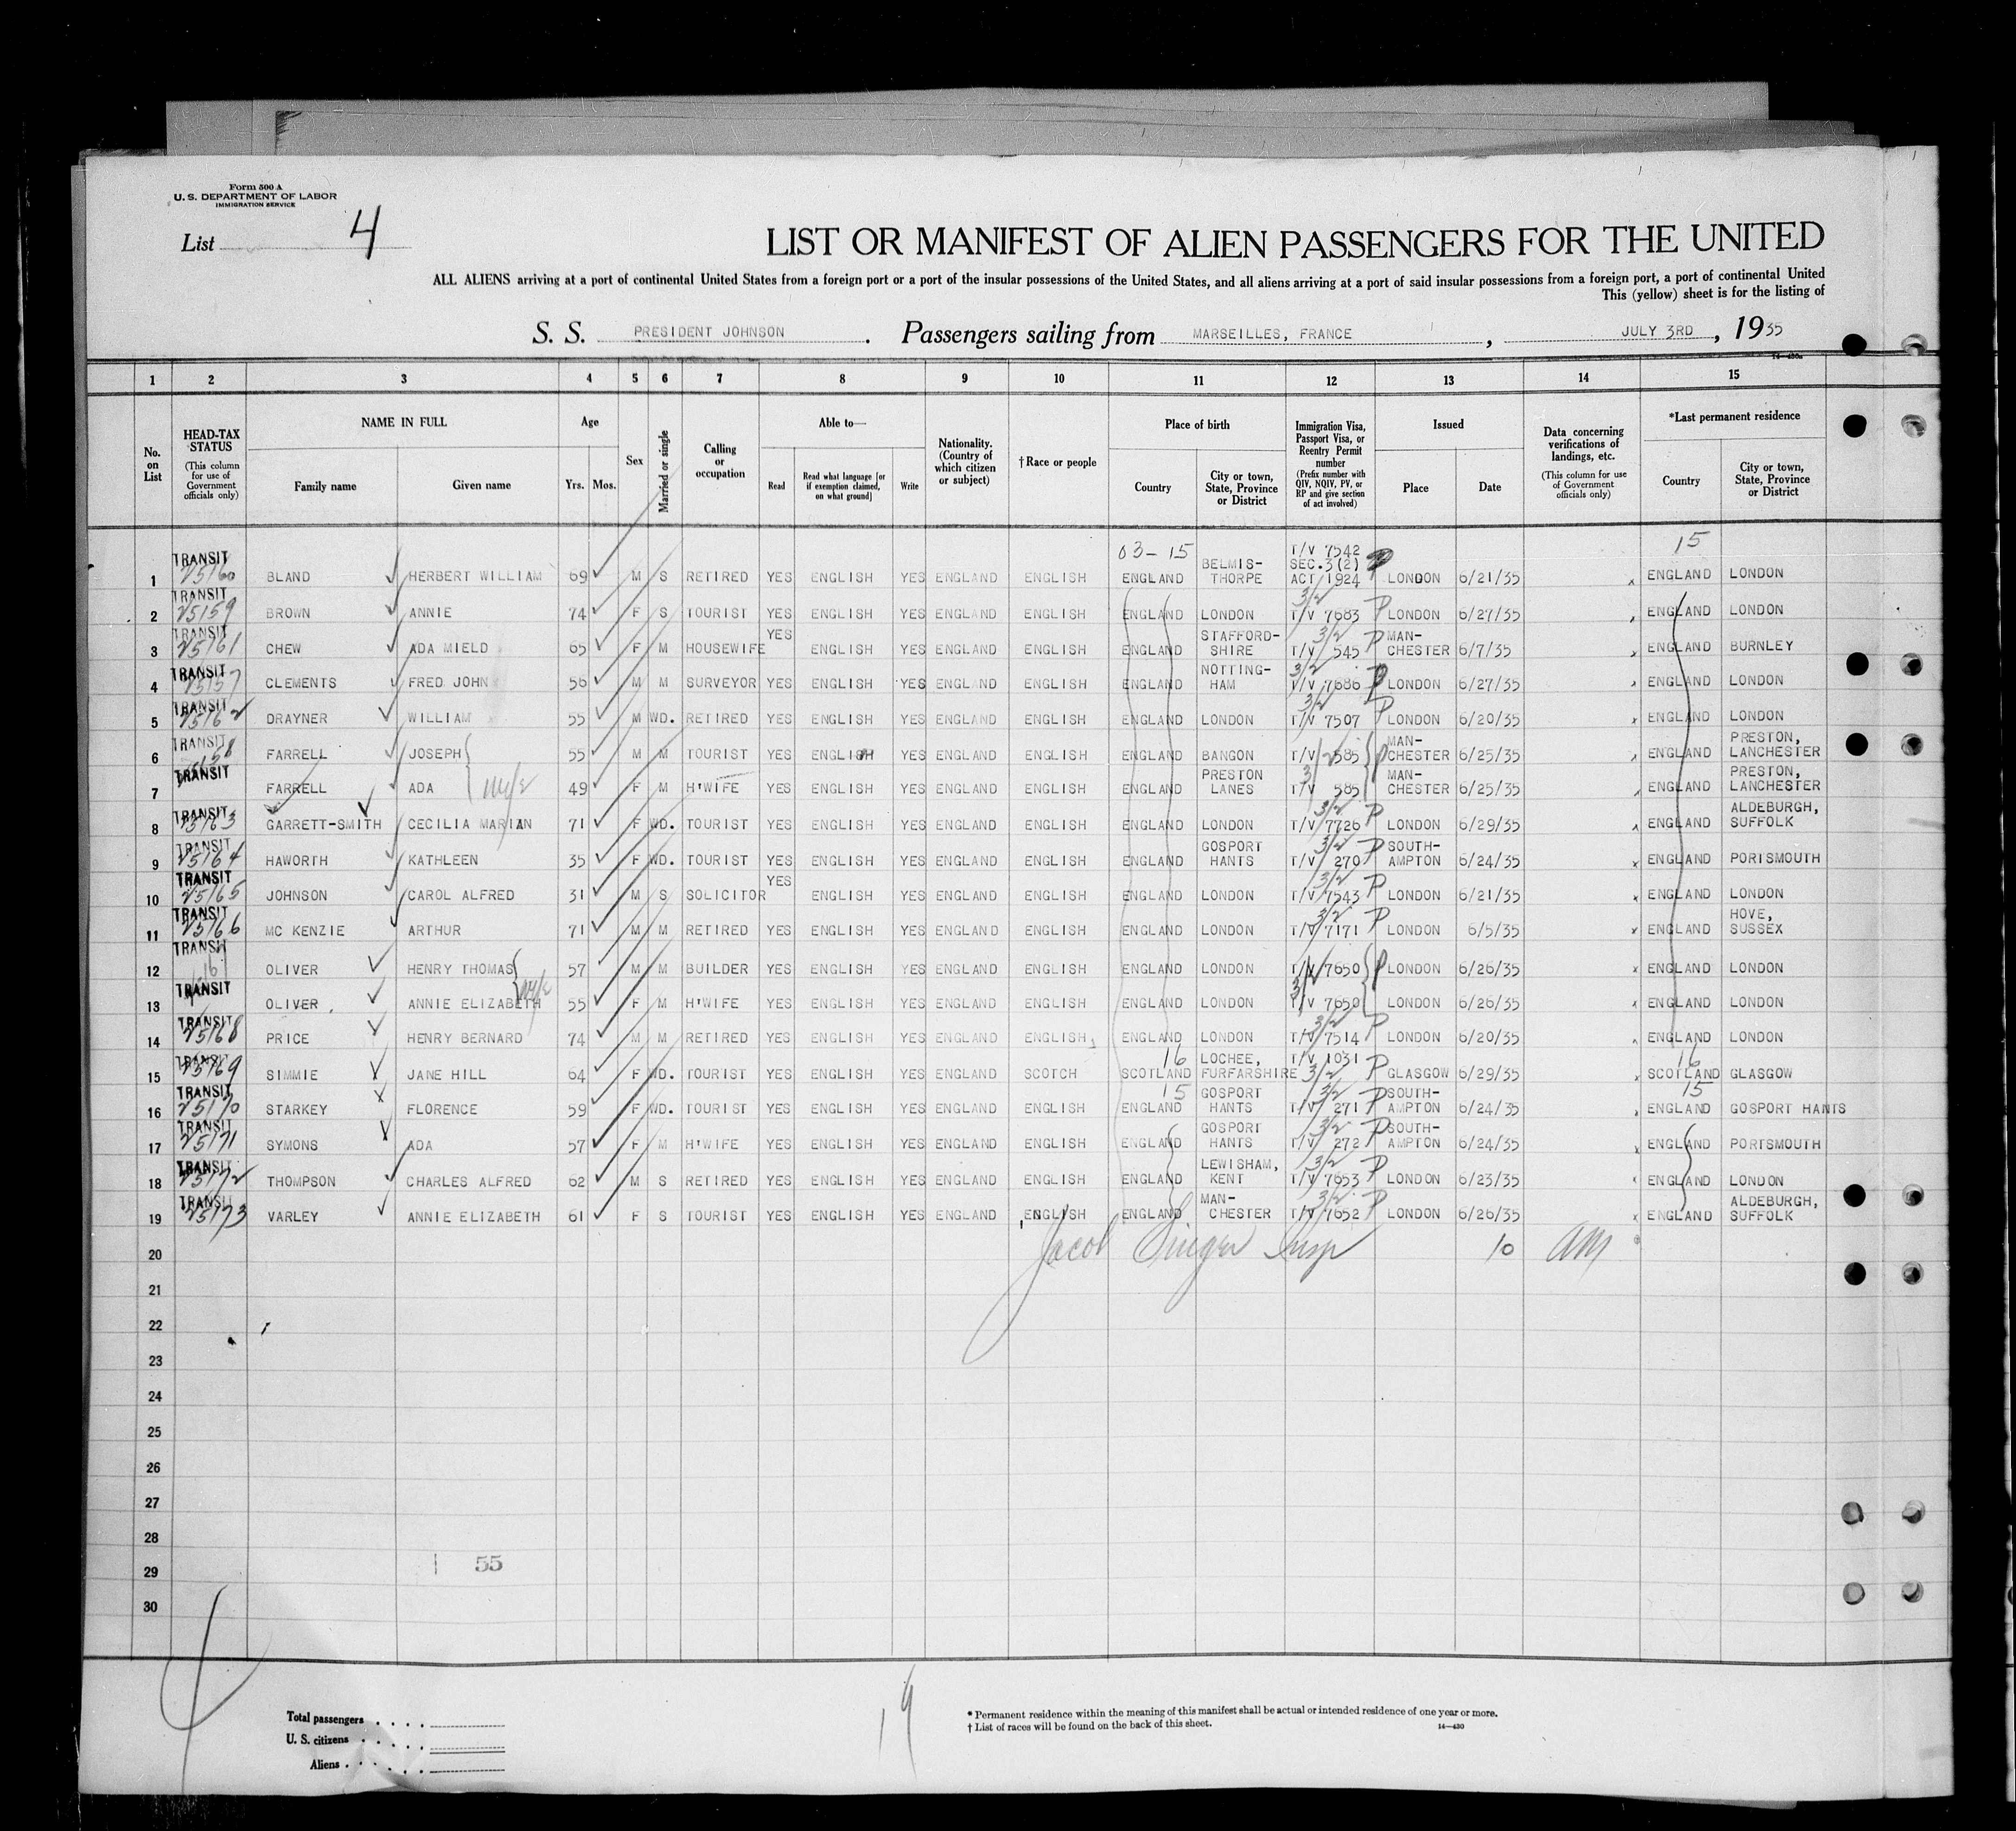 Form 500 A
U. S. DEPARTMENT OF LABOR
IMMIGRATION SERVICE
List 4
LIST OR MANIFEST OF ALIEN PASSENGERS FOR THE UNITED
ALL ALIENS arriving at a port of continental United States from a foreign port or a port of the insular possessions of the United States, and all aliens arriving at a port of said insular possessions from a foreign port, a port of continental United
This (yellow) sheet is for the listing of
S. S. PRESIDENT JOHNSON . Passengers sailing from MARSEILLES, FRANCE , JULY 3RD , 1935
1 2 3 4 5 6 7 8 9 10 11 12 13 14 15
No. on List
HEAD-TAX STATUS (This column for use of Government officials only)
NAME IN FULL Family name Given name
Age Yrs. Mos.
Sex
Married or single
Calling or occupation
Able to— Read Read what language [or if exemption claimed, on what ground] Write
Nationality. (Country of which citizen or subject)
†Race or people
Place of birth Country City or town, State, Province or District
Immigration Visa, Passport Visa, or Reentry Permit number (Prefix number with QIV, NQIV, PV, or RP and give section of act involved)
Issued Place Date
Data concerning verifications of landings, etc. (This column for use of Government officials only)
*Last permanent residence Country City or town, State, Province or District
03-15 15
1 TRANSIT 25160 BLAND HERBERT WILLIAM 69 M S RETIRED YES ENGLISH YES ENGLAND ENGLISH ENGLAND BELMIS-THORPE T/V 7542 SEC.3(2) ACT 1924 P LONDON 6/21/35 ENGLAND LONDON
2 TRANSIT 25159 BROWN ANNIE 74 F S TOURIST YES ENGLISH YES ENGLAND ENGLISH ENGLAND LONDON 3/2 T/V 7683 P LONDON 6/27/35 ENGLAND LONDON
3 TRANSIT 25161 CHEW ADA MIELD 65 F M HOUSEWIFE YES ENGLISH YES ENGLAND ENGLISH ENGLAND STAFFORD-SHIRE 3/2 T/V 545 P MAN-CHESTER 6/7/35 ENGLAND BURNLEY
4 TRANSIT 25157 CLEMENTS FRED JOHN 56 M M SURVEYOR YES ENGLISH YES ENGLAND ENGLISH ENGLAND NOTTING-HAM 3/2 V/V 7686 P LONDON 6/27/35 ENGLAND LONDON
5 TRANSIT 25162 DRAYNER WILLIAM 55 M WD. RETIRED YES ENGLISH YES ENGLAND ENGLISH ENGLAND LONDON 3/2 T/V 7507 P LONDON 6/20/35 ENGLAND LONDON
6 TRANSIT 25158 FARRELL JOSEPH 55 M M TOURIST YES ENGLISH YES ENGLAND ENGLISH ENGLAND BANGON T/V 585 P MAN-CHESTER 6/25/35 ENGLAND PRESTON, LANCHESTER
7 TRANSIT FARRELL ADA wife 49 F M H'WIFE YES ENGLISH YES ENGLAND ENGLISH ENGLAND PRESTON LANES T/V 585 MAN-CHESTER 6/25/35 ENGLAND PRESTON, LANCHESTER
8 TRANSIT 25163 GARRETT-SMITH CECILIA MARIAN 71 F WD. TOURIST YES ENGLISH YES ENGLAND ENGLISH ENGLAND LONDON 3/2 T/V 7726 P LONDON 6/29/35 ENGLAND ALDEBURGH, SUFFOLK
9 TRANSIT 25164 HAWORTH KATHLEEN 35 F WD. TOURIST YES ENGLISH YES ENGLAND ENGLISH ENGLAND GOSPORT HANTS 3/2 T/V 270 P SOUTH-AMPTON 6/24/35 ENGLAND PORTSMOUTH
10 TRANSIT 25165 JOHNSON CAROL ALFRED 31 M S SOLICITOR YES ENGLISH YES ENGLAND ENGLISH ENGLAND LONDON 3/2 T/V 7543 P LONDON 6/21/35 ENGLAND LONDON
11 TRANSIT 25166 MC KENZIE ARTHUR 71 M M RETIRED YES ENGLISH YES ENGLAND ENGLISH ENGLAND LONDON 3/2 T/V 7171 P LONDON 6/5/35 ENGLAND HOVE, SUSSEX
12 TRANSIT OLIVER HENRY THOMAS 57 M M BUILDER YES ENGLISH YES ENGLAND ENGLISH ENGLAND LONDON T/V 7650 P LONDON 6/26/35 ENGLAND LONDON
13 TRANSIT OLIVER ANNIE ELIZABETH wife 55 F M H'WIFE YES ENGLISH YES ENGLAND ENGLISH ENGLAND LONDON T/V 7650 LONDON 6/26/35 ENGLAND LONDON
14 TRANSIT 25168 PRICE HENRY BERNARD 74 M M RETIRED YES ENGLISH YES ENGLAND ENGLISH ENGLAND LONDON 3/2 T/V 7514 P LONDON 6/20/35 ENGLAND LONDON
15 TRANSIT 25169 SIMMIE JANE HILL 64 F WD. TOURIST YES ENGLISH YES ENGLAND SCOTCH 16 SCOTLAND LOCHEE, FURFARSHIRE T/V 1031 3/2 P GLASGOW 6/29/35 16 SCOTLAND GLASGOW
16 TRANSIT 25170 STARKEY FLORENCE 59 F WD. TOURIST YES ENGLISH YES ENGLAND ENGLISH 15 ENGLAND GOSPORT HANTS 3/2 T/V 271 P SOUTH-AMPTON 6/24/35 15 ENGLAND GOSPORT HANTS
17 TRANSIT 25171 SYMONS ADA 57 F M H'WIFE YES ENGLISH YES ENGLAND ENGLISH ENGLAND GOSPORT HANTS 3/2 T/V 272 P SOUTH-AMPTON 6/24/35 ENGLAND PORTSMOUTH
18 TRANSIT 25172 THOMPSON CHARLES ALFRED 62 M S RETIRED YES ENGLISH YES ENGLAND ENGLISH ENGLAND LEWISHAM, KENT 3/2 T/V 7653 P LONDON 6/23/35 ENGLAND LONDON
19 TRANSIT 25173 VARLEY ANNIE ELIZABETH 61 F S TOURIST YES ENGLISH YES ENGLAND ENGLISH ENGLAND MAN-CHESTER 3/2 T/V 7652 P LONDON 6/26/35 ENGLAND ALDEBURGH, SUFFOLK
20 Jacob Singer Insp 10 am
21
22
23
24
25
26
27
28
29 55
30
19
Total passengers
U. S. citizens
Aliens
* Permanent residence within the meaning of this manifest shall be actual or intended residence of one year or more.
† List of races will be found on the back of this sheet.
14—430